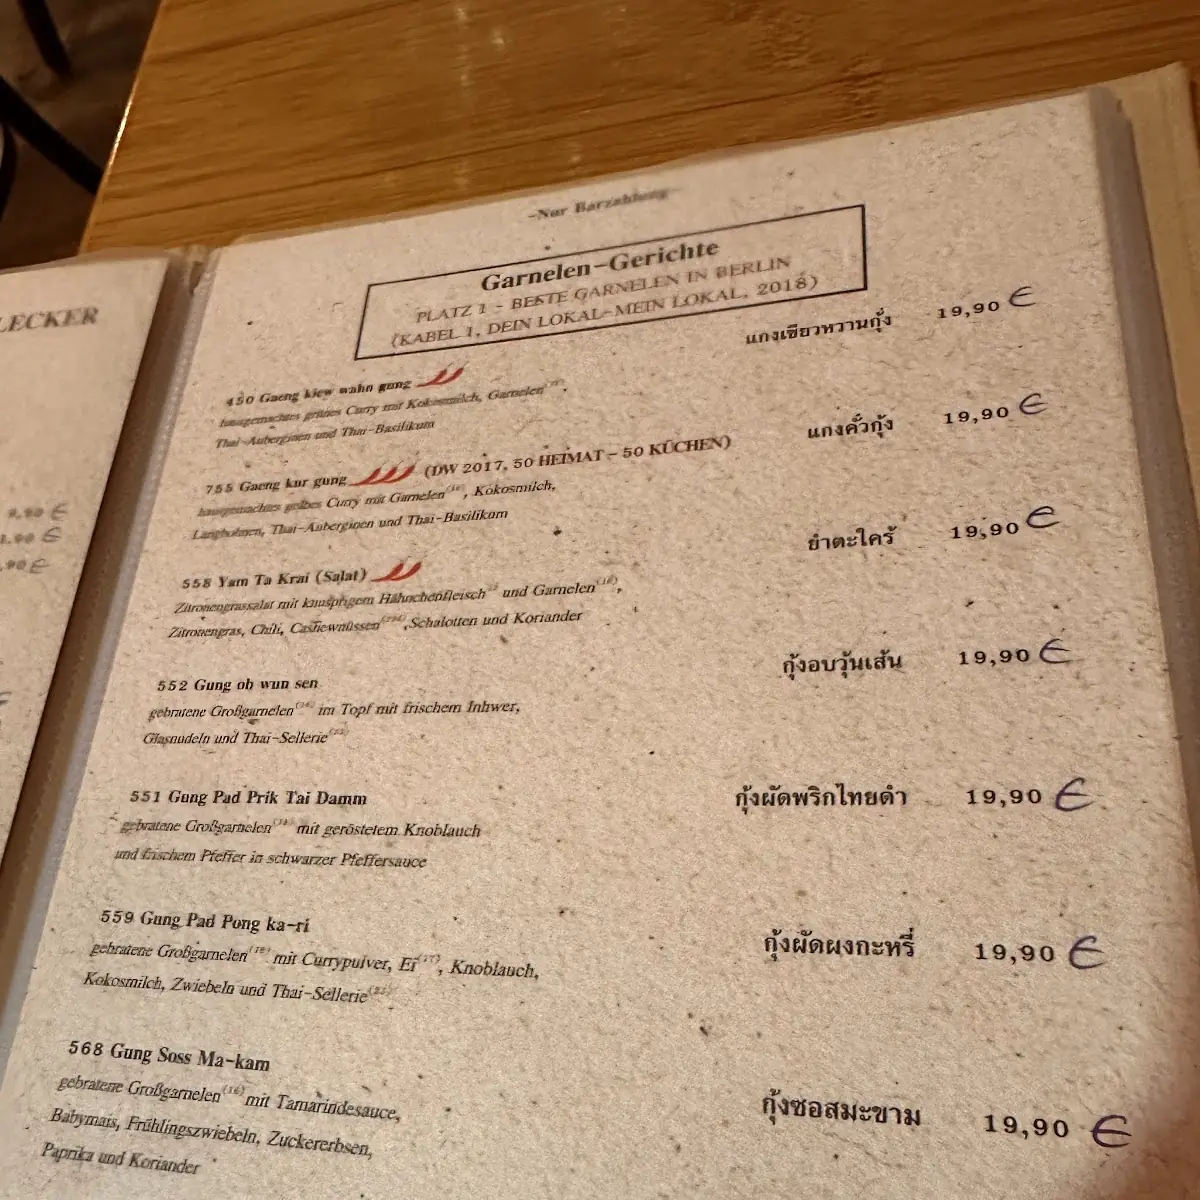 -Nur Barzahlung-
Garnelen-Gerichte
PLATZ 1 - BESTE GARNELEN IN BERLIN
(KABEL 1, DEIN LOKAL-MEIN LOKAL, 2018)
LECKER
9,90 €
,90 €
,90 €
450 Gaeng kiew wahn gung แกงเขียวหวานกุ้ง 19,90 €
hausgemachtes grünes Curry mit Kokosmilch, Garnelen
Thai-Auberginen und Thai-Basilikum
755 Gaeng kur gung (DW 2017, 50 HEIMAT - 50 KÜCHEN) แกงคั่วกุ้ง 19,90 €
hausgemachtes gelbes Curry mit Garnelen, Kokosmilch,
Langbohnen, Thai-Auberginen und Thai-Basilikum
558 Yam Ta Krai (Salat) ยำตะไคร้ 19,90 €
Zitronengrassalat mit knusprigem Hähnchenfleisch und Garnelen,
Zitronengras, Chili, Cashewnüssen, Schalotten und Koriander
552 Gung ob wun sen กุ้งอบวุ้นเส้น 19,90 €
gebratene Großgarnelen im Topf mit frischem Inhwer,
Glasnudeln und Thai-Sellerie
551 Gung Pad Prik Tai Damm กุ้งผัดพริกไทยดำ 19,90 €
gebratene Großgarnelen mit geröstetem Knoblauch
und frischem Pfeffer in schwarzer Pfeffersauce
559 Gung Pad Pong ka-ri กุ้งผัดผงกะหรี่ 19,90 €
gebratene Großgarnelen mit Currypulver, Ei, Knoblauch,
Kokosmilch, Zwiebeln und Thai-Sellerie
568 Gung Soss Ma-kam กุ้งซอสมะขาม 19,90 €
gebratene Großgarnelen mit Tamarindesauce,
Babymais, Frühlingszwiebeln, Zuckererbsen,
Paprika und Koriander